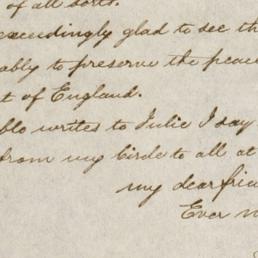 of all sorts.
exceedingly glad to see th
ably to preserve the peace
t of England.
writes to Julie I say
from my Circle to all at
my dear frie
Ever m